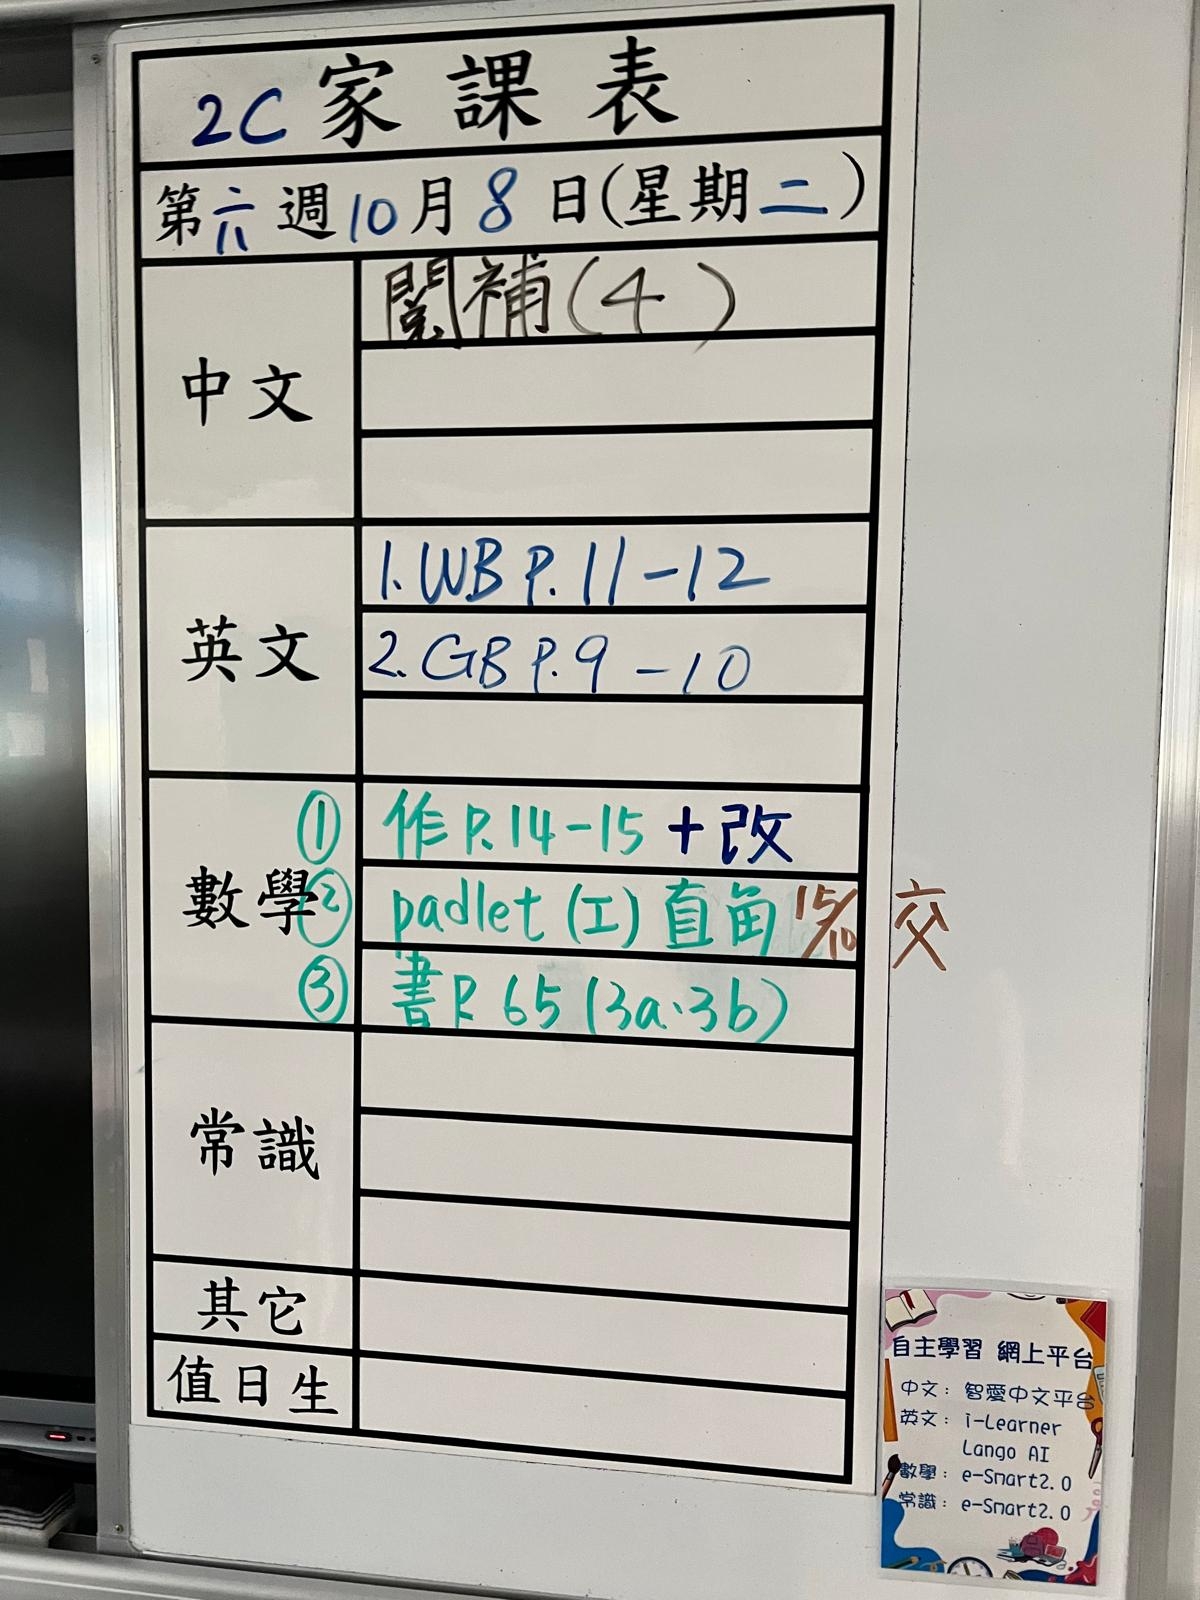 2C 家課表
第六週10月8日(星期二)
中文
閱補(4)
英文
1. WB P.11-12
2. GB P.9-10
數學
① 作P.14-15 + 改
② padlet (工) 直角 15/10 交
③ 書P.65 (3a.3b)
常識
其它
值日生
自主學習 網上平台
中文: 智愛中文平台
英文: i-Learner
Lango AI
數學: e-Smart2.0
常識: e-Smart2.0